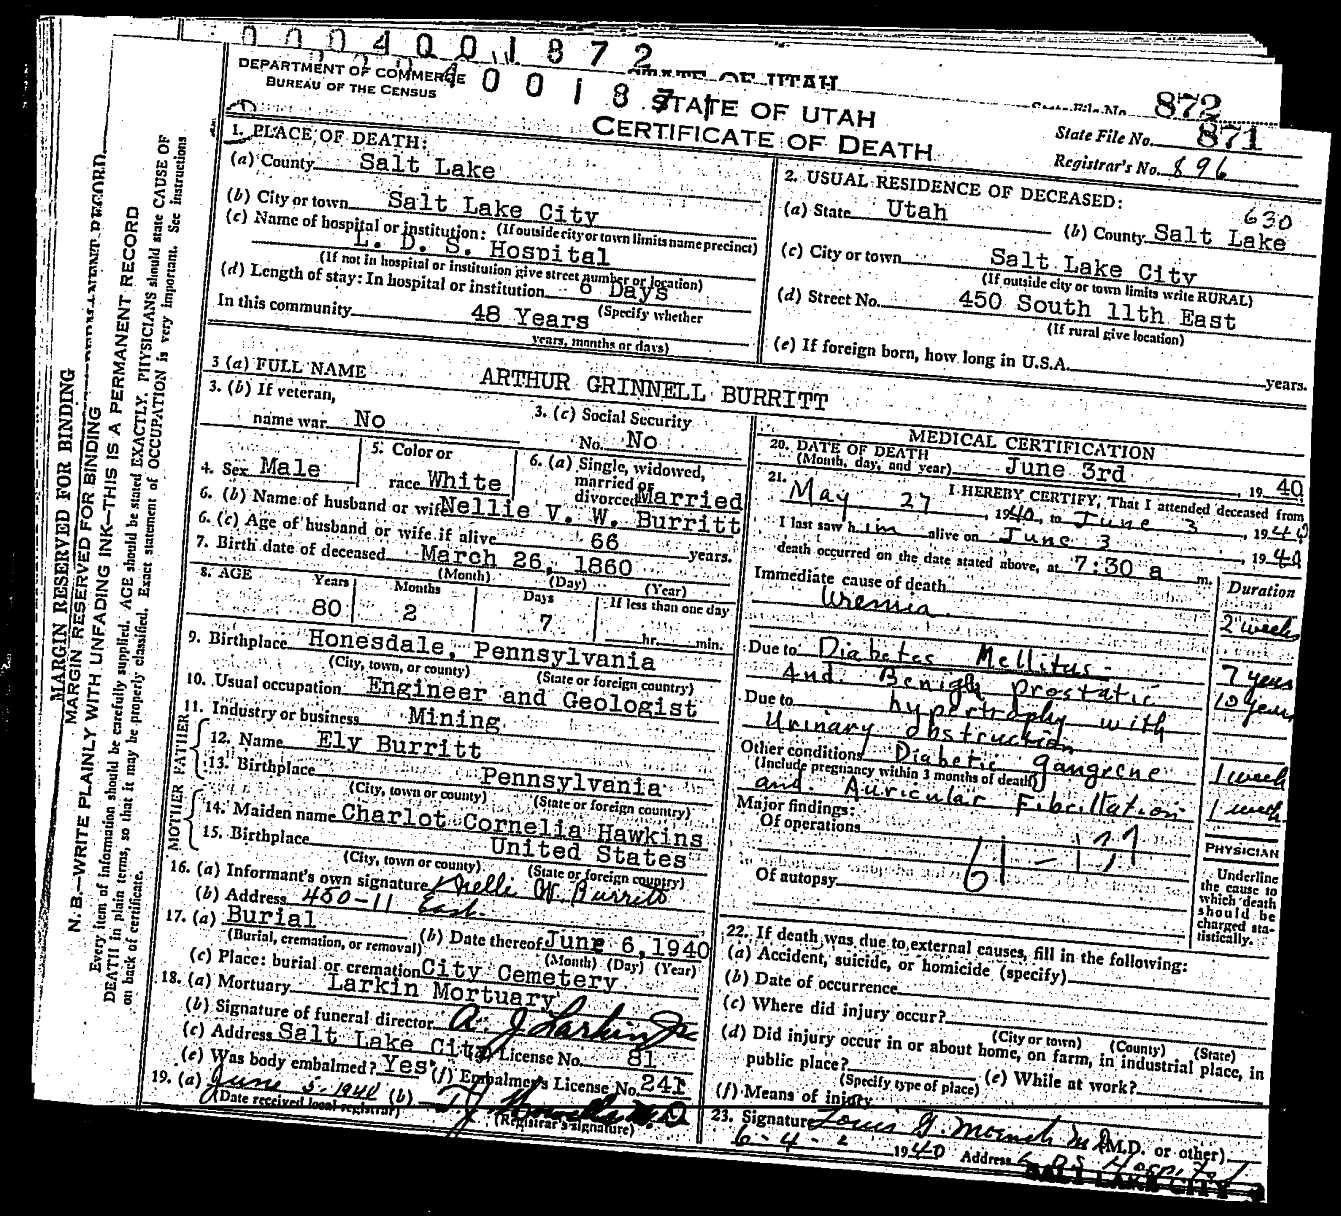 0004001872
STATE OF UTAH
State File No. 872
DEPARTMENT OF COMMERCE
BUREAU OF THE CENSUS
STATE OF UTAH
CERTIFICATE OF DEATH
State File No. 871
Registrar's No. 896
MARGIN RESERVED FOR BINDING
MARGIN RESERVED FOR BINDING
N. B.—WRITE PLAINLY WITH UNFADING INK—THIS IS A PERMANENT RECORD
Every item of information should be carefully supplied. AGE should be stated EXACTLY. PHYSICIANS should state CAUSE OF
DEATH in plain terms, so that it may be properly classified. Exact statement of OCCUPATION is very important. See instructions
on back of certificate.
1. PLACE OF DEATH:
(a) County Salt Lake
(b) City or town Salt Lake City
(If outside city or town limits name precinct)
(c) Name of hospital or institution:
L. D. S. Hospital
(If not in hospital or institution give street number or location)
(d) Length of stay: In hospital or institution 6 Days
(Specify whether
In this community 48 Years
years, months or days)
2. USUAL RESIDENCE OF DECEASED:
630
(a) State Utah (b) County Salt Lake
(c) City or town Salt Lake City
(If outside city or town limits write RURAL)
(d) Street No. 450 South 11th East
(If rural give location)
(e) If foreign born, how long in U.S.A. years.
3 (a) FULL NAME ARTHUR GRINNELL BURRITT
3. (b) If veteran,
name war No
3. (c) Social Security
No. No
4. Sex Male
5. Color or
race White
6. (a) Single, widowed,
married or
divorced Married
6. (b) Name of husband or wife Nellie V. W. Burritt
6. (c) Age of husband or wife if alive 66 years.
7. Birth date of deceased March 26, 1860
(Month) (Day) (Year)
8. AGE Years Months Days If less than one day
80 2 7 hr. min.
9. Birthplace Honesdale, Pennsylvania
(City, town, or county) (State or foreign country)
10. Usual occupation Engineer and Geologist
11. Industry or business Mining
FATHER
12. Name Ely Burritt
13. Birthplace Pennsylvania
(City, town or county) (State or foreign country)
MOTHER
14. Maiden name Charlot Cornelia Hawkins
15. Birthplace United States
(City, town or county) (State or foreign country)
16. (a) Informant's own signature Nellie W. Burritt
(b) Address 450-11 East.
17. (a) Burial (b) Date thereof June 6, 1940
(Burial, cremation, or removal) (Month) (Day) (Year)
(c) Place: burial or cremation City Cemetery
18. (a) Mortuary Larkin Mortuary
(b) Signature of funeral director A. J. Larkin Jr
(c) Address Salt Lake City License No. 81
(e) Was body embalmed? Yes (f) Embalmer's License No. 241
19. (a) June 5-1940 (b) M.D.
(Date received local registrar) (Registrar's signature)
MEDICAL CERTIFICATION
20. DATE OF DEATH
(Month, day, and year) June 3rd, 1940
21. I HEREBY CERTIFY, That I attended deceased from
May 27, 1940, to June 3, 1940
I last saw him alive on June 3, 1940
death occurred on the date stated above, at 7:30 a m.
Duration
Immediate cause of death
Uremia 2 weeks
Due to Diabetes Mellitus 7 years
And Benign Prostatic 10 years
Due to hypertrophy with
Urinary obstruction
Other conditions Diabetic gangrene 1 week
(Include pregnancy within 3 months of death)
and Auricular Fibrillation 1 week
Major findings:
Of operations
61-
Of autopsy
PHYSICIAN
Underline
the cause to
which death
should be
charged sta-
tistically.
22. If death was due to external causes, fill in the following:
(a) Accident, suicide, or homicide (specify)
(b) Date of occurrence
(c) Where did injury occur?
(City or town) (County) (State)
(d) Did injury occur in or about home, on farm, in industrial place, in
public place?
(Specify type of place) (e) While at work?
(f) Means of injury
23. Signature Louis G. Moench M.D. (M.D. or other)
6-4- 1940 Address L D S Hospital
SALT LAKE CITY